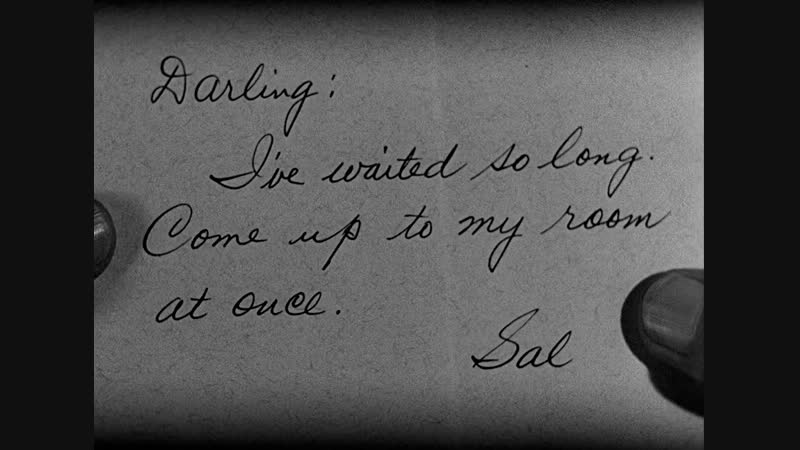 Darling:
I've waited so long.
Come up to my room
at once.
Sal